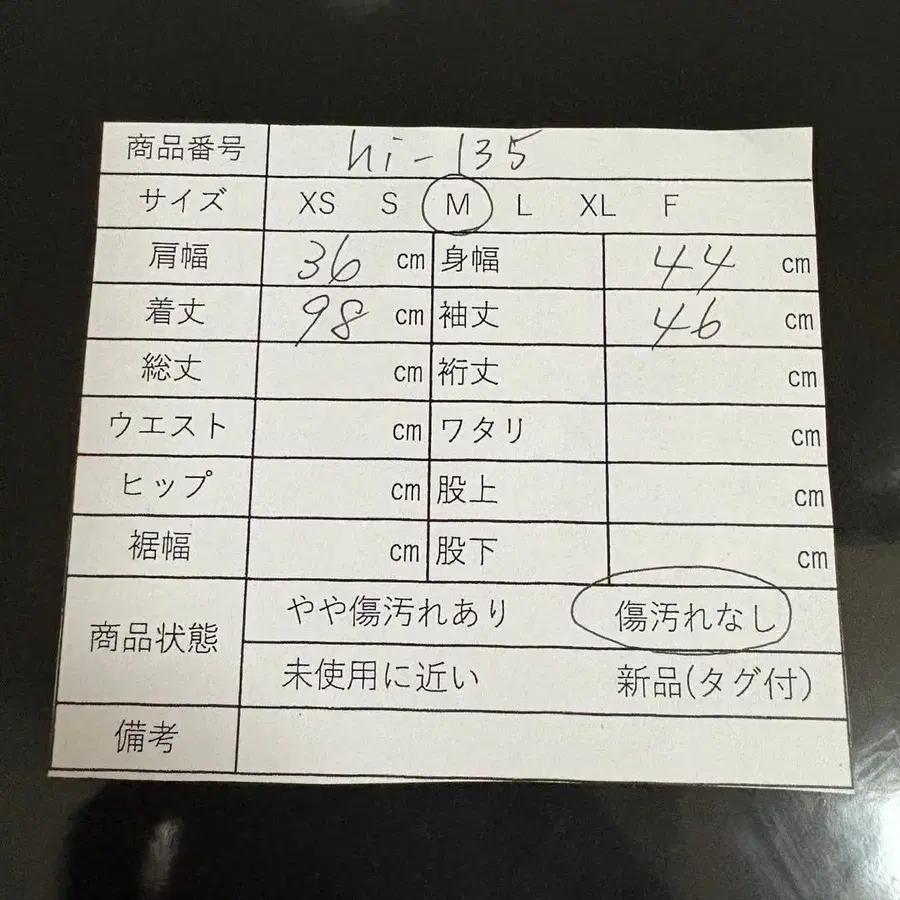 商品番号 hi-135
サイズ XS S M L XL F
肩幅 36 cm 身幅 44 cm
着丈 98 cm 袖丈 46 cm
総丈 cm 裄丈 cm
ウエスト cm ワタリ cm
ヒップ cm 股上 cm
裾幅 cm 股下 cm
商品状態 やや傷汚れあり 傷汚れなし
未使用に近い 新品(タグ付)
備考